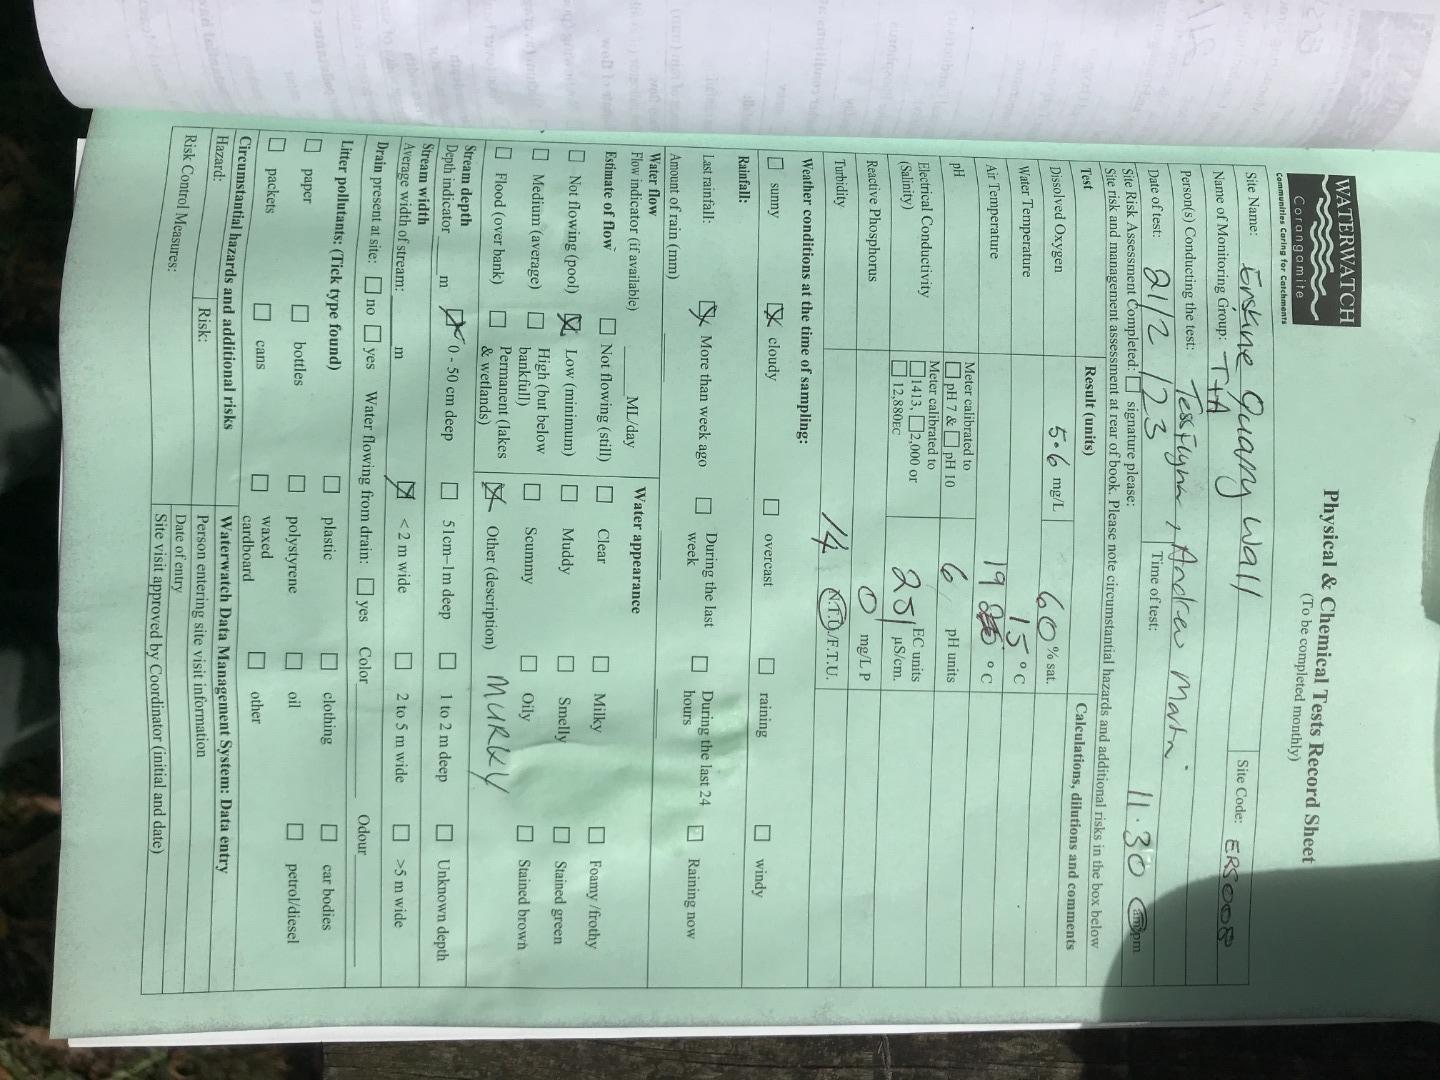 WATERWATCH
Corangamite
Communities Caring for Catchments
Physical & Chemical Tests Record Sheet
(To be completed monthly)
Site Name: Erskine Quarry Wall Site Code: ERS008
Name of Monitoring Group: T+A
Person(s) Conducting the test: Tess Flynn, Andrew Martin
Date of test: 21/2/23 Time of test: 11.30 am/pm
Site Risk Assessment Completed: ☐ signature please:
Site risk and management assessment at rear of book. Please note circumstantial hazards and additional risks in the box below
Test Result (units) Calculations, dilutions and comments
Dissolved Oxygen 5.6 mg/L 60 % sat.
Water Temperature 15 °C
Air Temperature 19 °C
pH Meter calibrated to ☐ pH 7 & ☐ pH 10 6 pH units
Electrical Conductivity (Salinity) Meter calibrated to ☐ 1413, ☐ 2,000 or ☐ 12,880EC 251 EC units µS/cm.
Reactive Phosphorus 0 mg/L P
Turbidity 14 N.T.U./F.T.U.
Weather conditions at the time of sampling:
☐ sunny ☒ cloudy ☐ overcast ☐ raining ☐ windy
Rainfall:
Last rainfall: ☒ More than week ago ☐ During the last week ☐ During the last 24 hours ☐ Raining now
Amount of rain (mm)
Water flow
Flow indicator (if available) ____ ML/day
Estimate of flow ☐ Not flowing (still)
☐ Not flowing (pool) ☒ Low (minimum)
☐ Medium (average) ☐ High (but below bankfull)
☐ Flood (over bank) ☐ Permanent (lakes & wetlands)
Water appearance
☐ Clear ☐ Milky ☐ Foamy /frothy
☐ Muddy ☐ Smelly ☐ Stained green
☐ Scummy ☐ Oily ☐ Stained brown
☒ Other (description) MURKY
Stream depth
Depth indicator ____ m ☒ 0 - 50 cm deep ☐ 51cm-1m deep ☐ 1 to 2 m deep ☐ Unknown depth
Stream width
Average width of stream: ____ m ☒ < 2 m wide ☐ 2 to 5 m wide ☐ >5 m wide
Drain present at site: ☐ no ☐ yes Water flowing from drain: ☐ yes Color ____ Odour ____
Litter pollutants: (Tick type found)
☐ paper ☐ bottles ☐ plastic ☐ clothing ☐ car bodies
☐ packets ☐ cans ☐ polystyrene ☐ oil ☐ petrol/diesel
☐ waxed cardboard ☐ other
Circumstantial hazards and additional risks
Hazard: Risk:
Risk Control Measures:
Waterwatch Data Management System: Data entry
Person entering site visit information
Date of entry
Site visit approved by Coordinator (initial and date)